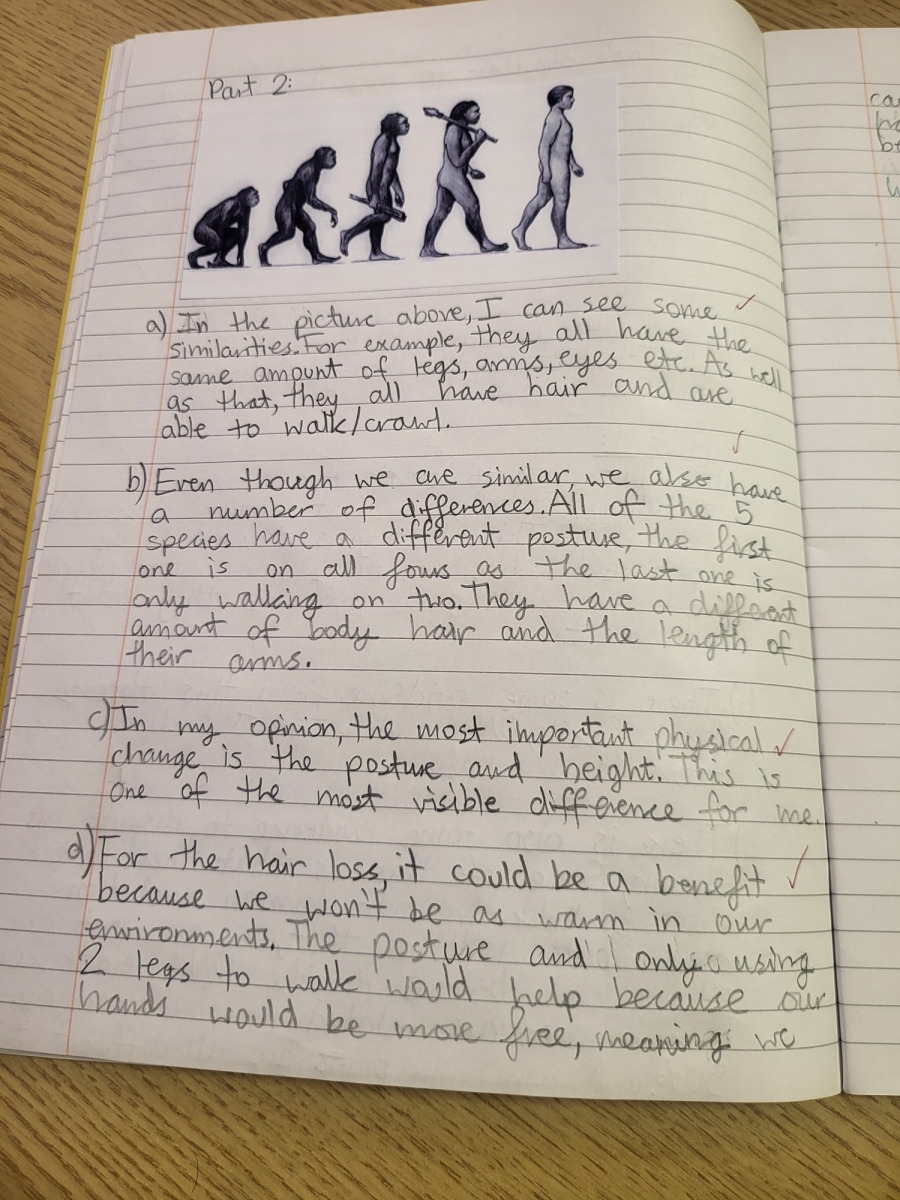 Part 2:
a) In the picture above, I can see some
similarities. For example, they all have the
same amount of legs, arms, eyes etc. As well
as that, they all have hair and are
able to walk/crawl.
b) Even though we are similar, we also have
a number of differences. All of the 5
species have a different posture, the first
one is on all fours as the last one is
only walking on two. They have a different
amount of body hair and the length of
their arms.
c) In my opinion, the most important physical
change is the posture and height. This is
one of the most visible difference for me.
d) For the hair loss, it could be a benefit
because we won't be as warm in our
environments. The posture and only using
2 legs to walk would help because our
hands would be more free, meaning we
ca
be